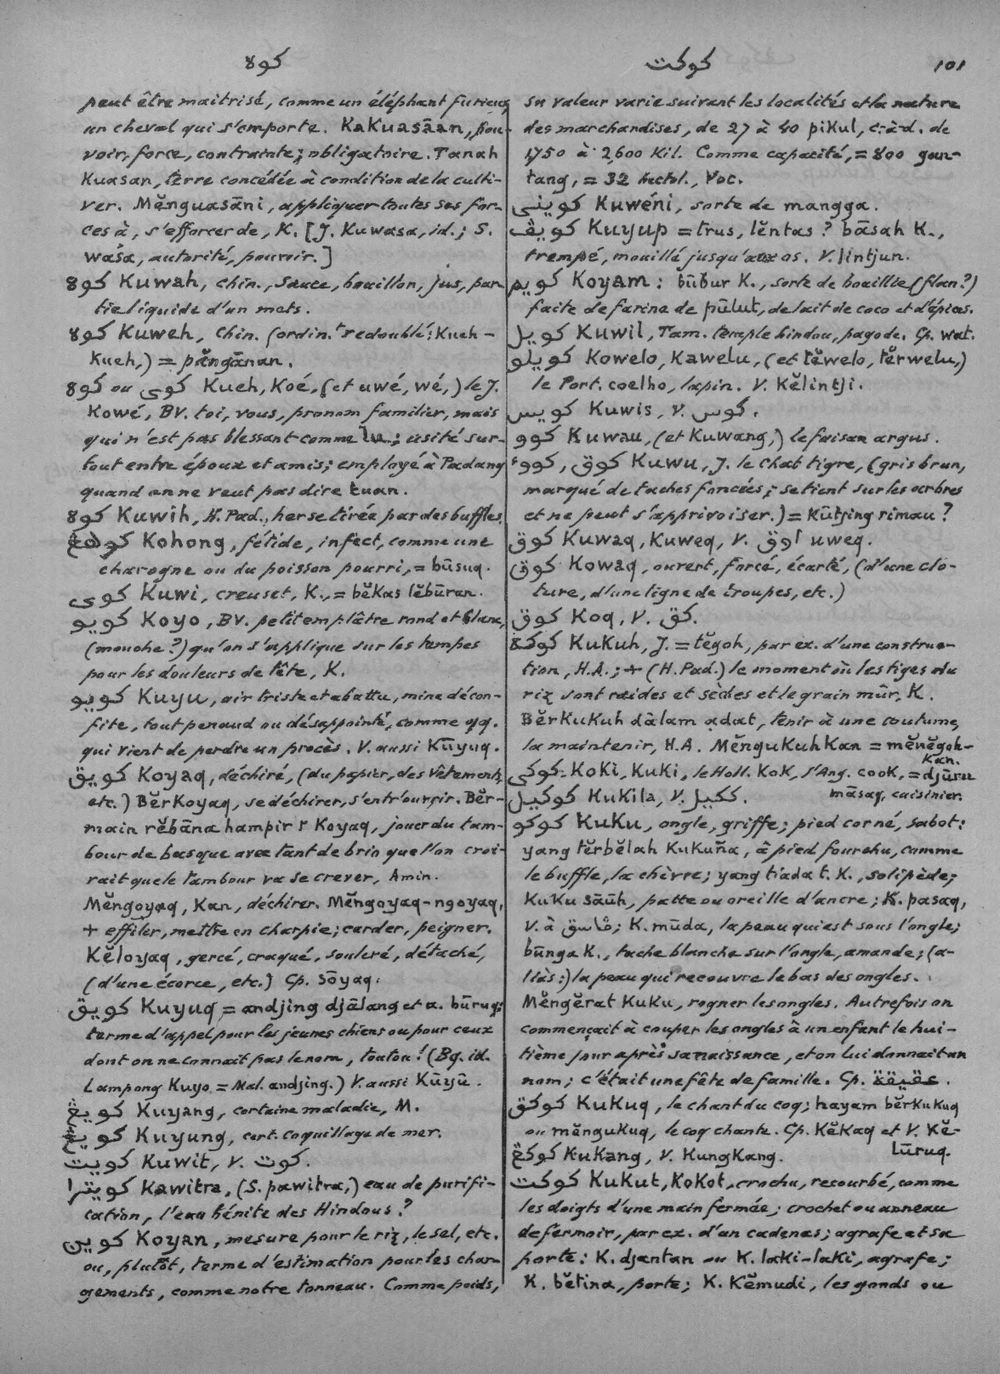 كوه
كوكت
101
peut être maitrisé, comme un éléphant furieux,
un cheval qui s'emporte. Kakuasāan, pou-
voir, force, contrainte; obligatoire. Tanah
Kuasan, terre concédée à condition de la culti-
ver. Mĕnguasāni, appliquer toutes ses for-
ces à, s'efforcer de, K. [J. Kuwasa, id.; S.
waśa, autorité, pouvoir.]
كوه Kuwah, chin., sauce, bouillon, jus, par-
tie liquide d'un mets.
كوه Kuweh, chin. (ordin.t redoublé: Kueh-
Kueh,) = pĕngānan.
كوه ou كوى Kueh, Koé, (et uwé, wé,) le J.
Kowé, BV. toi, vous, pronom familier, mais
qui n'est pas blessant comme lu; usité sur-
tout entre époux et amis; employé à Padang
quand on ne veut pas dire tuan.
كوه Kuwih, H. Pad., herse tirée par des buffles.
كوهڠ Kohong, fétide, infect, comme une
charogne ou du poisson pourri, = būsuq.
كوى Kuwi, creuset, K., = bĕkas lĕbūran.
كويو Koyo, BV. petit emplâtre rond et blanc,
(mouche?) qu'on s'applique sur les tempes
pour les douleurs de tête, K.
كويو Kuyu, air triste et abattu, mine décon-
fite, tout penaud ou désappointé, comme qq.
qui vient de perdre un procès. V. aussi Kūyuq.
كويق Koyaq, déchiré, (du papier, des vêtements,
etc.) Bĕrkoyaq, se déchirer, s'entr'ouvrir. Bĕr-
main rĕbāna hampir2 Koyaq, jouer du tam-
bour de basque avec tant de brio que l'on croi-
rait que le tambour va se crever, Amin.
Mĕngoyaq, Kan, déchirer. Mĕngoyaq-ngoyaq,
+ effiler, mettre en charpie; carder, peigner.
Kĕloyaq, gercé, craqué, soulevé, détaché,
(d'une écorce, etc.) Cp. Sōyaq.
كويق Kuyuq = andjing djālang et a. būruq;
terme d'appel pour les jeunes chiens ou pour ceux
dont on ne connaît pas le nom, toutou! (Bg. id.
Lampong Kuyo = Mal. andjing.) V. aussi Kūyū.
كويڠ Kuyang, certaine maladie, M.
كويڠ Kuyung, cert. coquillage de mer.
كويت Kuwit, V. كوت.
كويترا Kawitra, (S. pawitra,) eau de purifi-
cation, l'eau bénite des Hindous?
كوين Koyan, mesure pour le riz, le sel, etc.
ou, plutôt, terme d'estimation pour les char-
gements, comme notre tonneau. Comme poids,
sa valeur varie suivant les localités et la nature
des marchandises, de 27 à 40 pikul, c:-à-d. de
1,750 à 2,600 Kil. Comme capacité, = 800 gan-
tang, = 32 hectol., Voc.
كوينى Kuwéni, sorte de mangga.
كويڤ Kuyup = trus, lĕntas? bāsah K.,
trempé, mouillé jusqu'aux os. V. lintjun.
كويم Koyam: būbur K., sorte de bouillie (flan?)
faite de farine de pūlut, de lait de coco et d'épices.
كويل Kuwil, Tam. temple hindou, pagode. Cp. wat.
كويلو Kowelo, Kawelu, (et tĕwelo, tĕrwelu,)
le Port. coelho, lapin. V. Kĕlintji.
كويس Kuwis, V. كوس.
كوو Kuwau, (et Kuwang,) le faisan argus.
كووء, كووق Kuwu, J. le chat tigre, (gris brun,
marqué de taches foncées; se tient sur les arbres
et ne peut s'apprivoiser.) = Kūtjing rimau?
كوق Kuwaq, Kuweq, V. اوق uweq.
كوق Kowaq, ouvert, forcé, écarté, (d'une clô-
ture, d'une ligne de troupes, etc.)
كوق Koq, V. كق.
كوكه Kukuh, J. = tĕgoh, par ex. d'une construc-
tion, H.A.; + (H. Pad.) le moment où les tiges du
riz sont raides et sèches et le grain mûr, K.
Bĕrkukuh dālam adat, tenir à une coutume,
la maintenir, H.A. Mĕngukuhkan = mĕnĕgoh-
kan.
كوكى Koki, Kuki, le Holl. Kok, l'Ang. cook, = djūru
māsaq, cuisinier.
كوكيل Kukila, V. ككيل.
كوكو Kuku, ongle, griffe; pied corné, sabot:
yang tĕrbĕlah Kukuña, à pied fourchu, comme
le buffle, la chèvre; yang tiada t. K., solipède;
Kuku sāūh, patte ou oreille d'ancre; K. pasaq,
V. à ڤاسق; K. mūda, la peau qui est sous l'ongle;
būnga K., tache blanche sur l'ongle, amande; (a-
liàs:) la peau qui recouvre le bas des ongles.
Mĕngĕrat Kuku, rogner les ongles. Autrefois on
commençait à couper les ongles à un enfant le hui-
tième jour après sa naissance, et on lui donnait un
nom; c'était une fête de famille. Cp. عقيقة.
كوكق Kukuq, le chant du coq; hayam bĕrkukuq
ou mĕngukuq, le coq chante. Cp. Kĕkaq et V. Kĕ-
lūruq.
كوكڠ Kukang, V. Kungkang.
كوكت Kukut, Kokot, crochu, recourbé, comme
les doigts d'une main fermée; crochet ou anneau
de fermoir, par ex. d'un cadenas; agrafe et sa
porte: K. djantan ou K. laki-laki, agrafe;
K. bĕtina, porte; K. Kĕmudi, les gonds ou